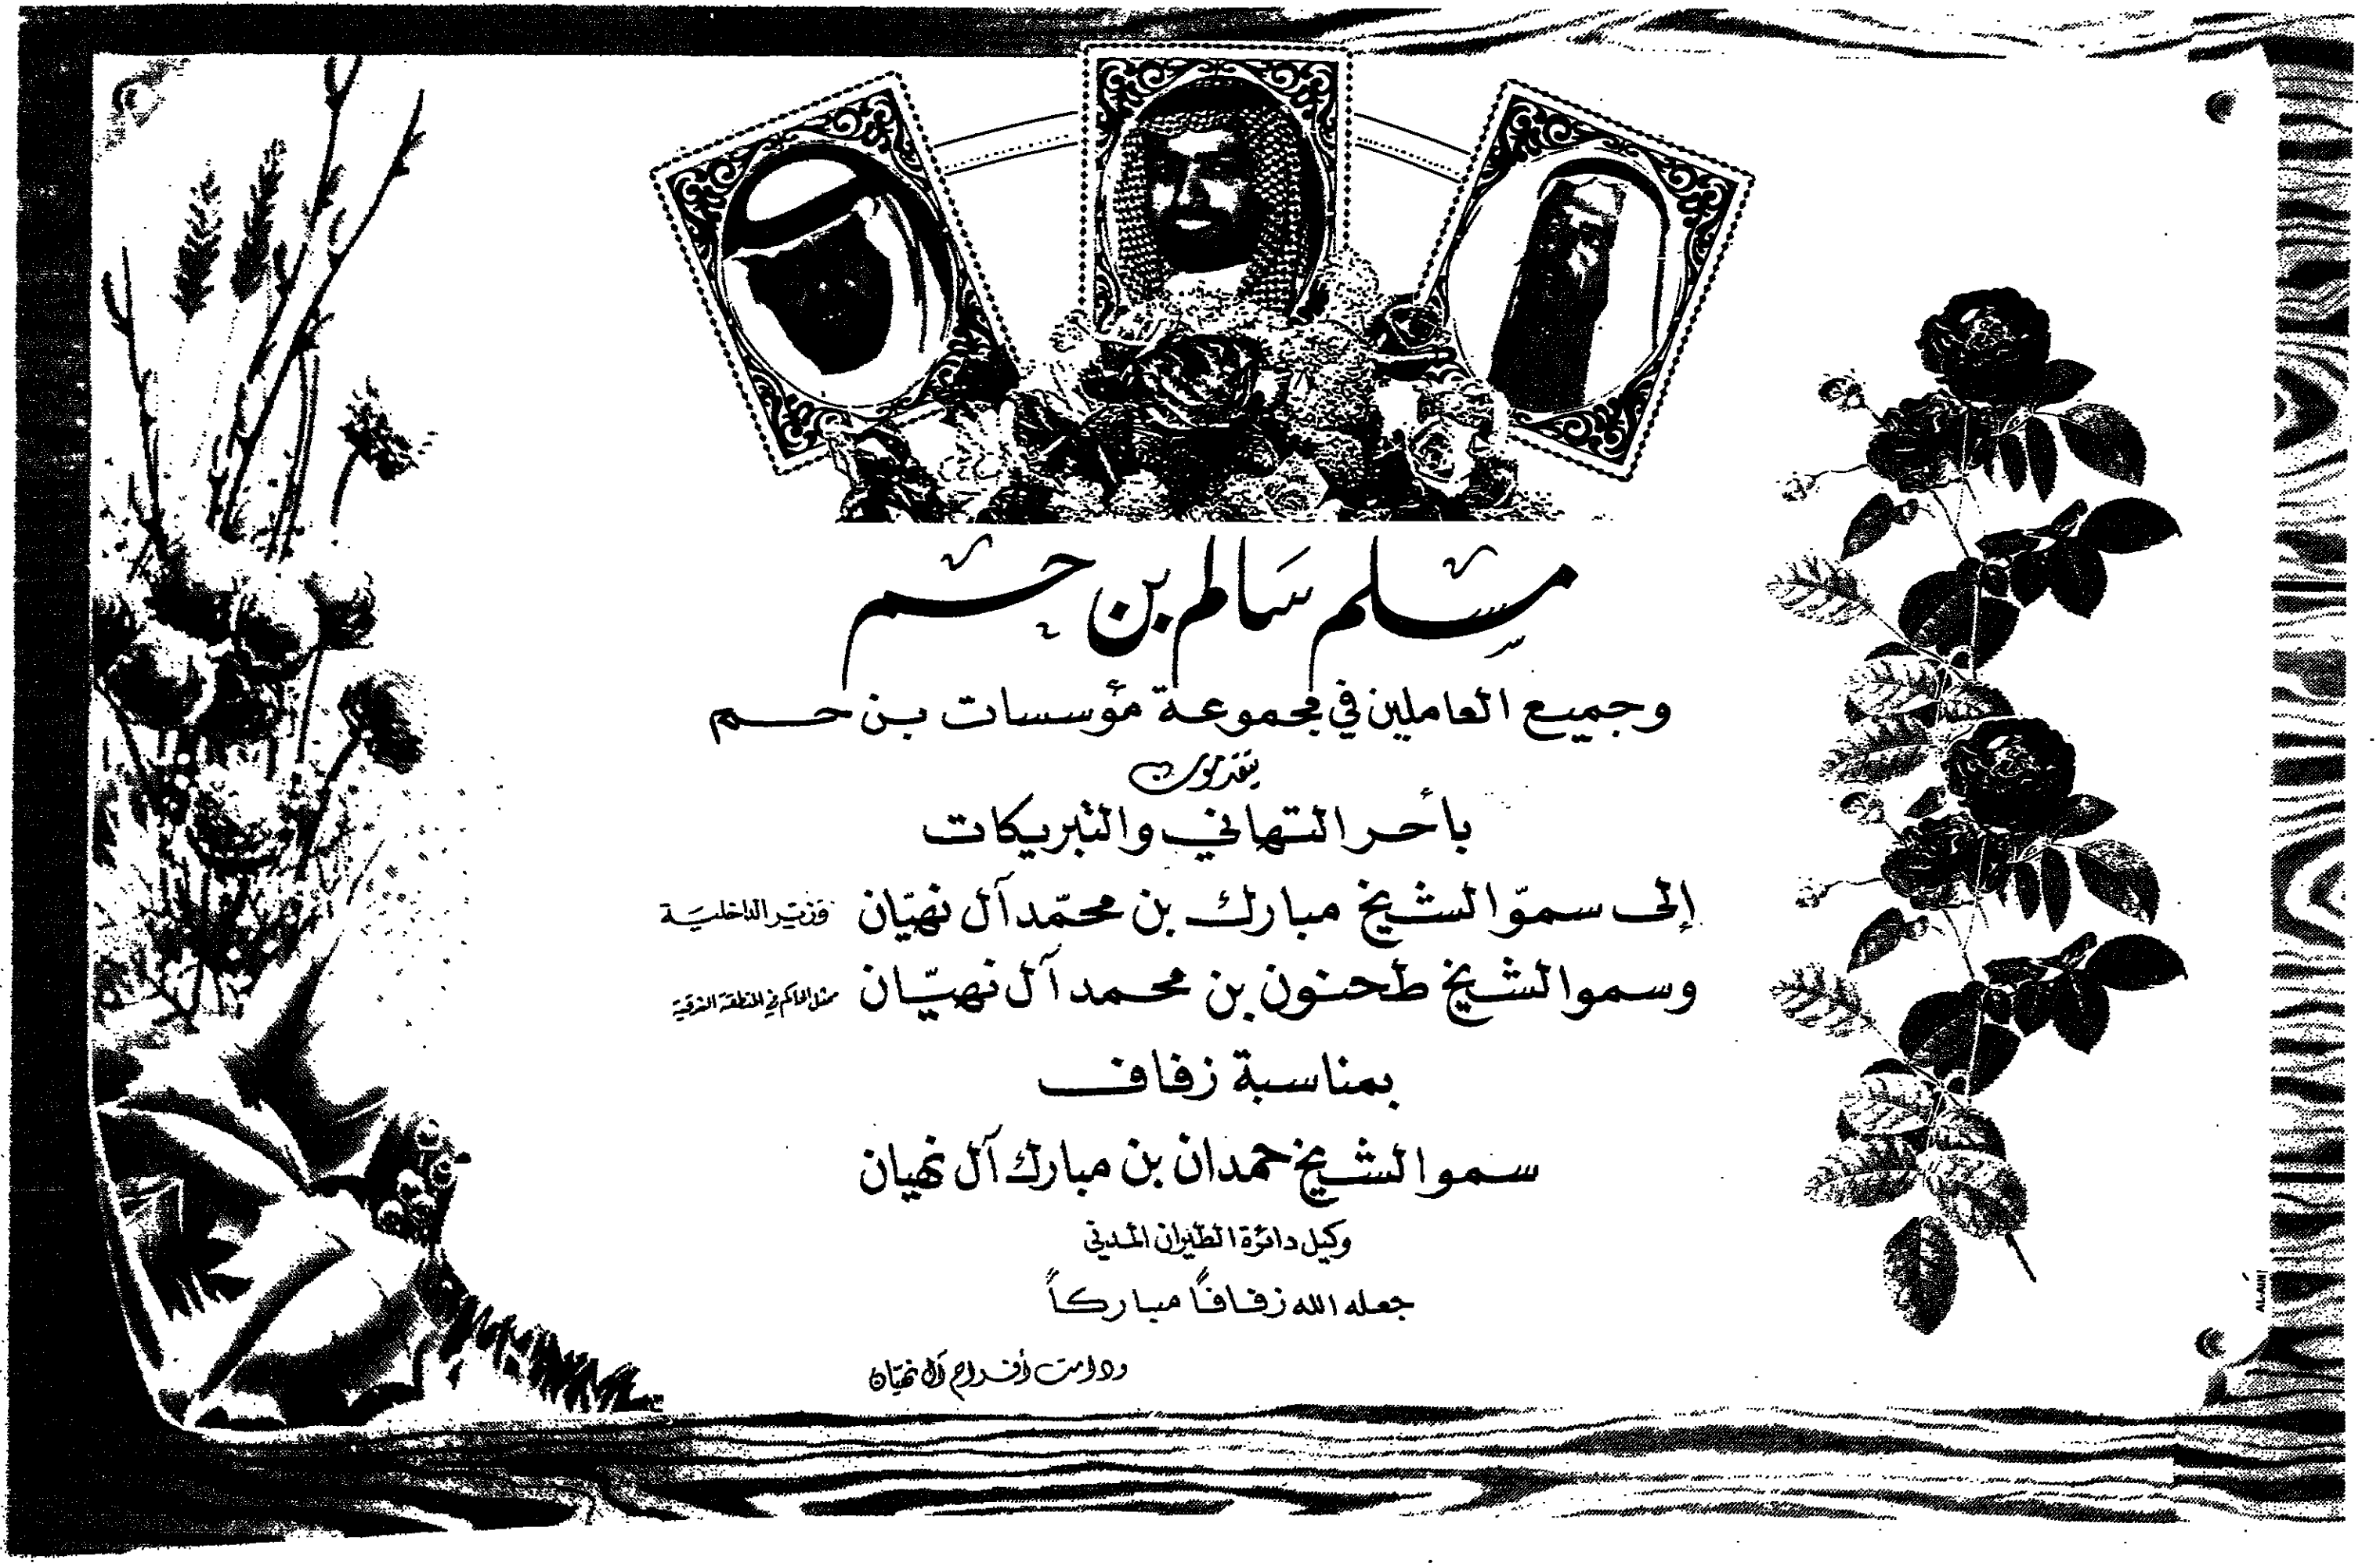 مسلم سالم بن حم
وجميع العاملين في مجموعة مؤسسات بن حم
يتقدمون
بأحر التهاني والتبريكات
إلى سموّ الشيخ مبارك بن محمّد آل نهيّان وزير الداخلية
وسمو الشيخ طحنون بن محمد آل نهيّان ممثل الحاكم في المنطقة الشرقية
بمناسبة زفاف
سمو الشيخ حمدان بن مبارك آل نهيان
وكيل دائرة الطيران المدني
جعله الله زفافاً مباركاً
ودامت أفراح آل نهيّان
AL-AIN